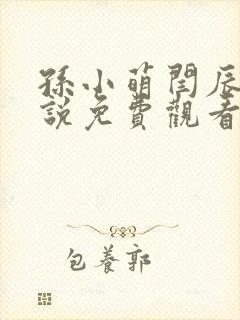 孫小萌閏辰
說免費觀看
包養郭